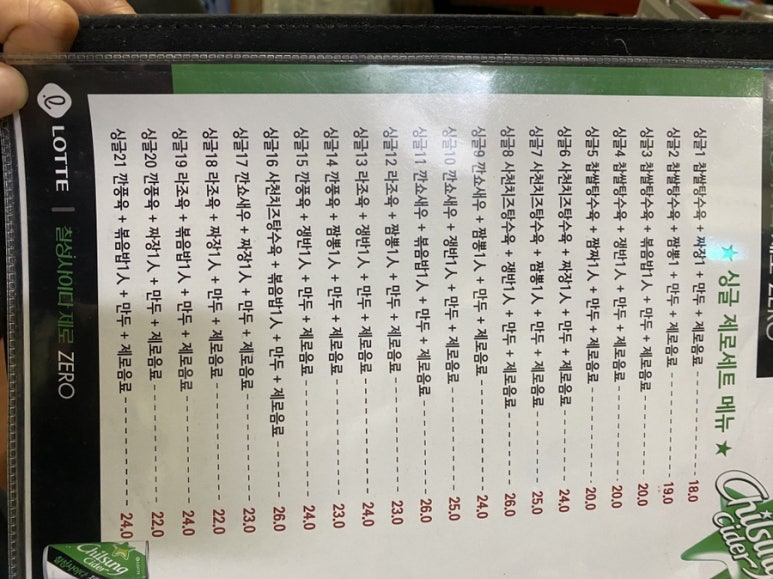 ★ 싱글 제로세트 메뉴 ★
싱글1 찹쌀탕수육 + 짜장1 + 만두 + 제로음료 18.0
싱글2 찹쌀탕수육 + 짬뽕1 + 만두 + 제로음료 19.0
싱글3 찹쌀탕수육 + 볶음밥1人 + 만두 + 제로음료 20.0
싱글4 찹쌀탕수육 + 쟁반1人 + 만두 + 제로음료 20.0
싱글5 찹쌀탕수육 + 짬짜1人 + 만두 + 제로음료 20.0
싱글6 사천치즈탕수육 + 짜장1人 + 만두 + 제로음료 24.0
싱글7 사천치즈탕수육 + 짬뽕1人 + 만두 + 제로음료 25.0
싱글8 사천치즈탕수육 + 쟁반1人 + 만두 + 제로음료 26.0
싱글9 깐쇼새우 + 짬뽕1人 + 만두 + 제로음료 24.0
싱글10 깐쇼새우 + 쟁반1人 + 만두 + 제로음료 25.0
싱글11 깐쇼새우 + 볶음밥1人 + 만두 + 제로음료 26.0
싱글12 라조육 + 짬뽕1人 + 만두 + 제로음료 23.0
싱글13 라조육 + 쟁반1人 + 만두 + 제로음료 24.0
싱글14 깐풍육 + 짬뽕1人 + 만두 + 제로음료 23.0
싱글15 깐풍육 + 쟁반1人 + 만두 + 제로음료 24.0
싱글16 사천치즈탕수육 + 볶음밥1人 + 만두 + 제로음료 26.0
싱글17 깐쇼새우 + 짜장1人 + 만두 + 제로음료 23.0
싱글18 라조육 + 짜장1人 + 만두 + 제로음료 22.0
싱글19 라조육 + 볶음밥1人 + 만두 + 제로음료 24.0
싱글20 깐풍육 + 짜장1人 + 만두 + 제로음료 22.0
싱글21 깐풍육 + 볶음밥1人 + 만두 + 제로음료 24.0
LOTTE | 칠성사이다 제로 ZERO
Chilsung
Cider
Chilsung
Cider